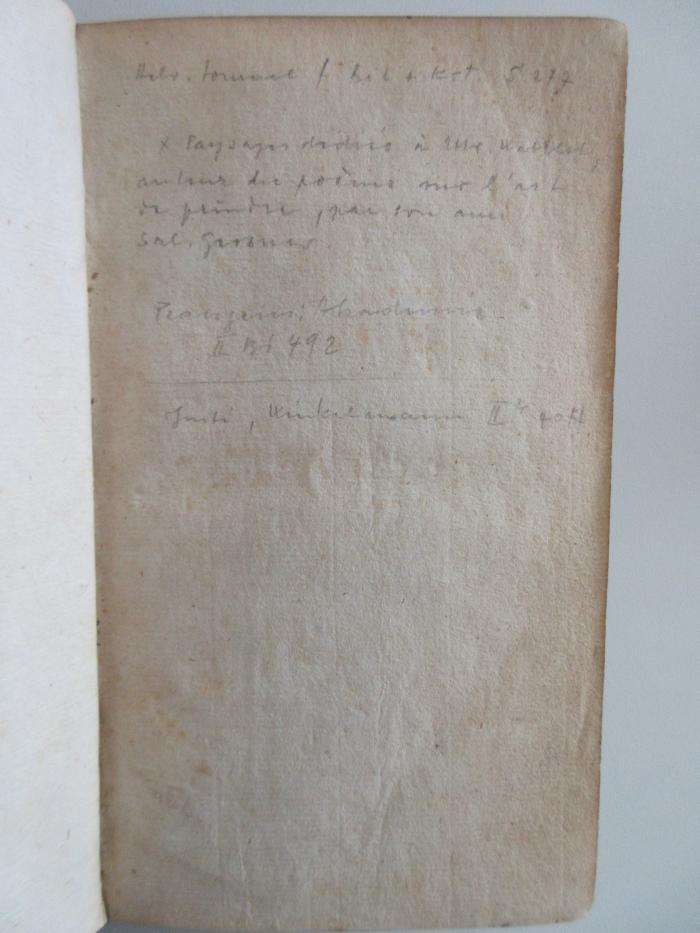 Helv. Journal f Lit + Kst. S 277
x Paysages dédiés à Mr. Watelet,
auteur du poème sur l'art
de peindre, par son ami
Sal. Gessner.
Akademie
II 492
Justi, Winkelmann II